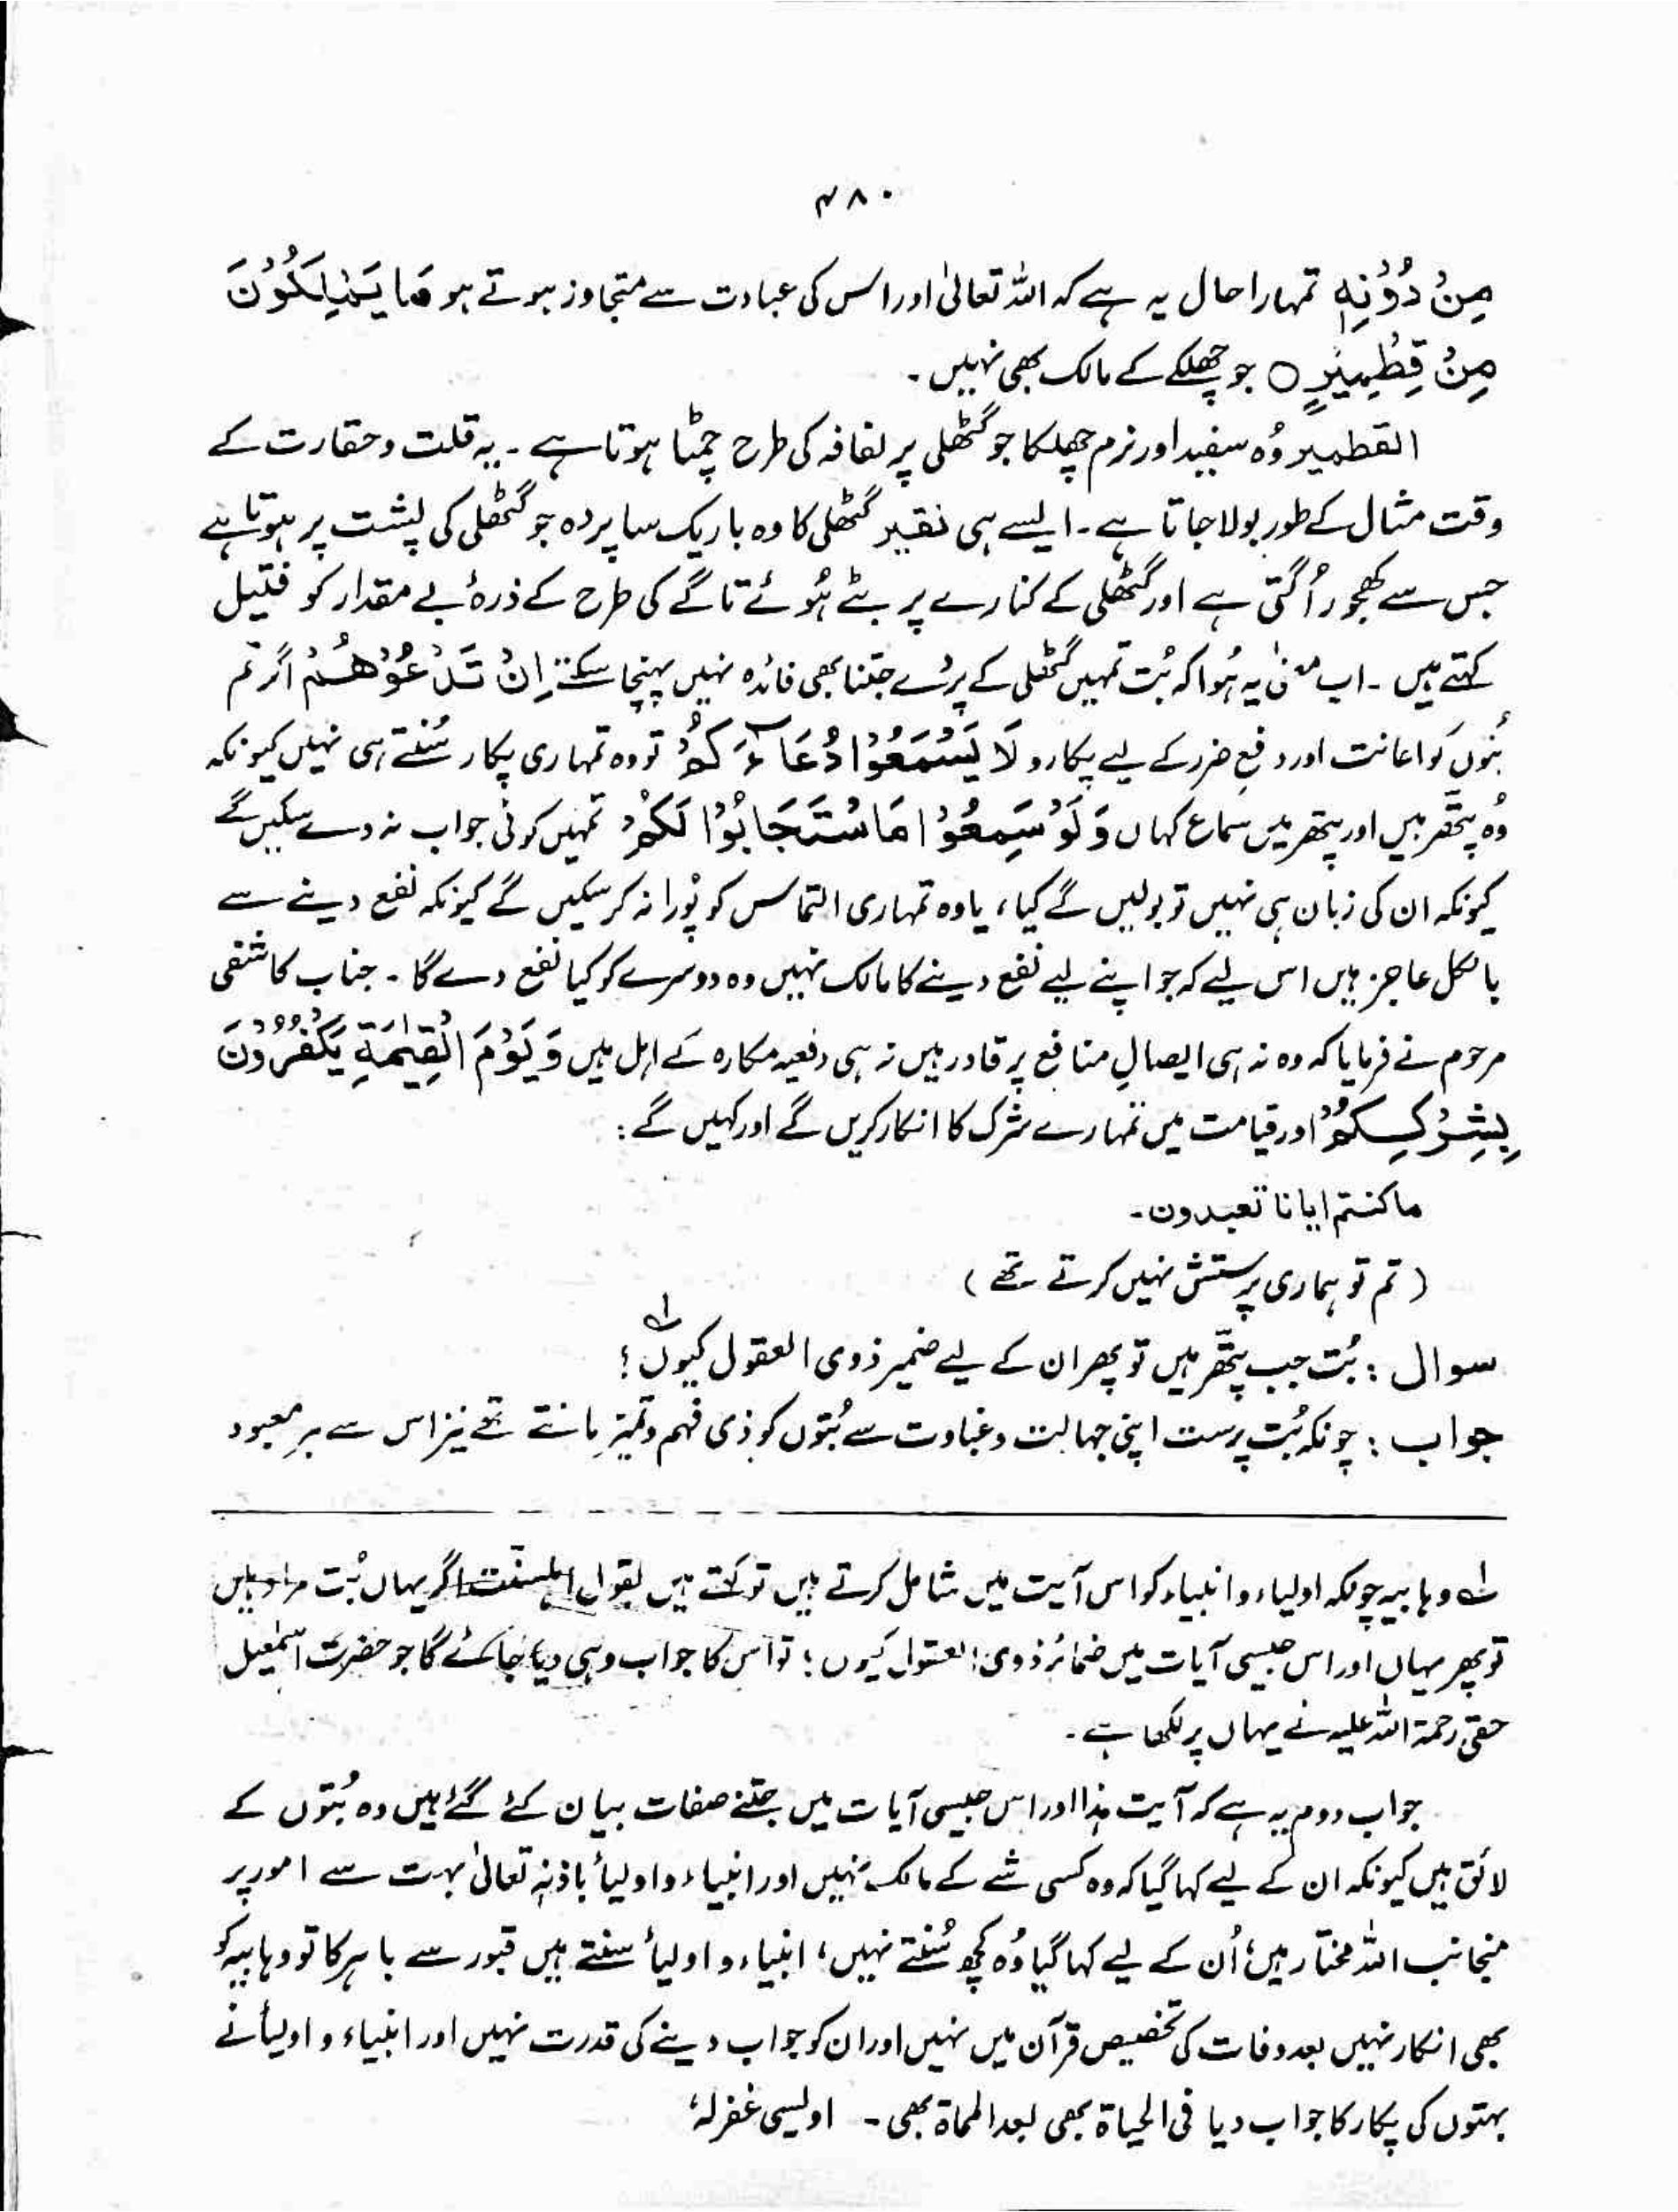 ۴۸۰
مِنْ دُوْنِهٖ تمہارا حال یہ ہے کہ اللہ تعالیٰ اور اس کی عبادت سے متجاوز ہوتے ہو مَا يَمْلِكُوْنَ
مِنْ قِطْمِيْرٍ ○ جو چھلکے کے مالک بھی نہیں۔
القطمیر وُہ سفید اور نرم چھلکا جو گٹھلی پر لفافہ کی طرح چمٹا ہوتا ہے۔ یہ قلت و حقارت کے
وقت مثال کے طور بولا جاتا ہے۔ ایسے ہی نقیر گٹھلی کا وہ باریک سا پردہ جو گٹھلی کی پشت پر ہوتا ہے
جس سے کھجور اُگتی ہے اور گٹھلی کے کنارے پر بٹے ہُوئے تاگے کی طرح کے ذرۂ بے مقدار کو فتیل
کہتے ہیں۔ اب معنیٰ یہ ہُوا کہ بُت تمہیں گٹھلی کے پردے جتنا بھی فائدہ نہیں پہنچا سکتے اِنْ تَدْعُوْهُمْ اگر تم
بُتوں کو اعانت اور دفعِ ضرر کے لیے پکارو لَا يَسْمَعُوْا دُعَآءَكُمْ تو وہ تمہاری پکار سُنتے ہی نہیں کیونکہ
وُہ پتّھر ہیں اور پتھر میں سماع کہاں وَلَوْ سَمِعُوْا مَا اسْتَجَابُوْا لَكُمْ تمہیں کوئی جواب نہ دے سکیں گے
کیونکہ ان کی زبان ہی نہیں تو بولیں گے کیا، یا وہ تمہاری التماس کو پُورا نہ کرسکیں گے کیونکہ نفع دینے سے
بالکل عاجز ہیں اس لیے کہ جو اپنے لیے نفع دینے کا مالک نہیں وہ دوسرے کو کیا نفع دے گا۔ جناب کاشفی
مرحوم نے فرمایا کہ وہ نہ ہی ایصالِ منافع پر قادر ہیں نہ ہی دفعیہ مکارہ کے اہل ہیں وَيَوْمَ الْقِيٰمَةِ يَكْفُرُوْنَ
بِشِرْكِكُمْ اور قیامت میں تمہارے شرک کا انکار کریں گے اور کہیں گے:
ماکنتم ایانا تعبدون۔
(تم تو ہماری پرستش نہیں کرتے تھے)
سوال: بُت جب پتّھر ہیں تو پھر ان کے لیے ضمیر ذوی العقول کیوں؟ لہ
جواب: چونکہ بُت پرست اپنی جہالت و غباوت سے بُتوں کو ذی فہم و تمیز مانتے تھے نیز اس سے ہر معبود
لہ وہابیہ چونکہ اولیاء و انبیاء کو اس آیت میں شامل کرتے ہیں تو کہتے ہیں بقول اہلسنّت اگر یہاں بُت مراد ہیں
تو پھر یہاں اور اس جیسی آیات میں ضمائر ذوی العقول کیوں؟ تو اس کا جواب وہی دیا جائے گا جو حضرت اسمٰعیل
حقی رحمۃ اللہ علیہ نے یہاں پر لکھا ہے۔
جواب دوم یہ ہے کہ آیت ہٰذا اور اس جیسی آیات میں جتنے صفات بیان کئے گئے ہیں وہ بُتوں کے
لائق ہیں کیونکہ ان کے لیے کہا گیا کہ وہ کسی شے کے مالک نہیں اور انبیاء و اولیاء باذنہٖ تعالیٰ بہت سے امور پر
منجانب اللہ مختار ہیں، اُن کے لیے کہا گیا وُہ کچھ سُنتے نہیں، انبیاء و اولیاء سنتے ہیں قبور سے باہر کا تو وہابیہ کو
بھی انکار نہیں بعد وفات کی تخصیص قرآن میں نہیں اور ان کو جواب دینے کی قدرت نہیں اور انبیاء و اولیاء نے
بہتوں کی پکار کا جواب دیا فی الحیاۃ بھی بعد المماۃ بھی۔ اویسی غفرلہٗ